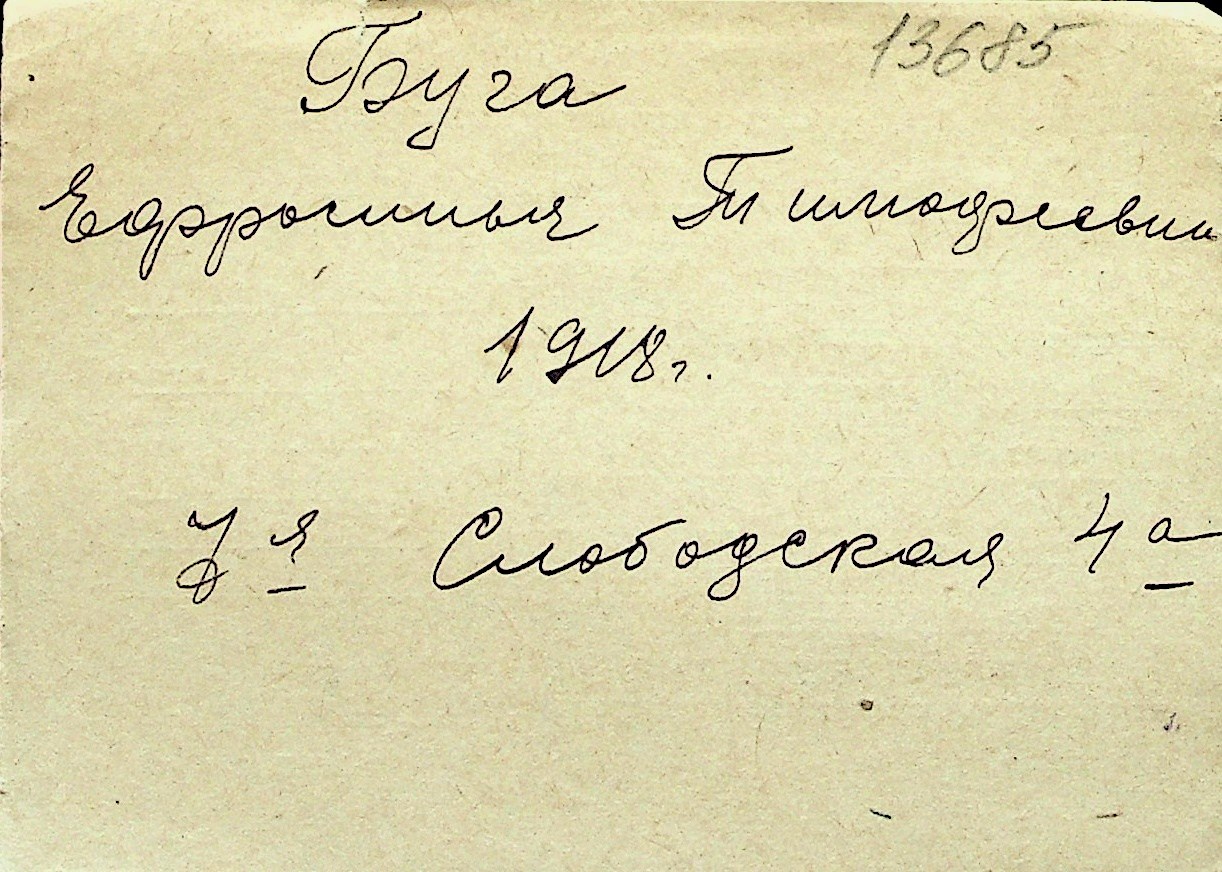 13685
Буга
Ефросинья Тимофеевна
1918г.
7я Слободская 4а